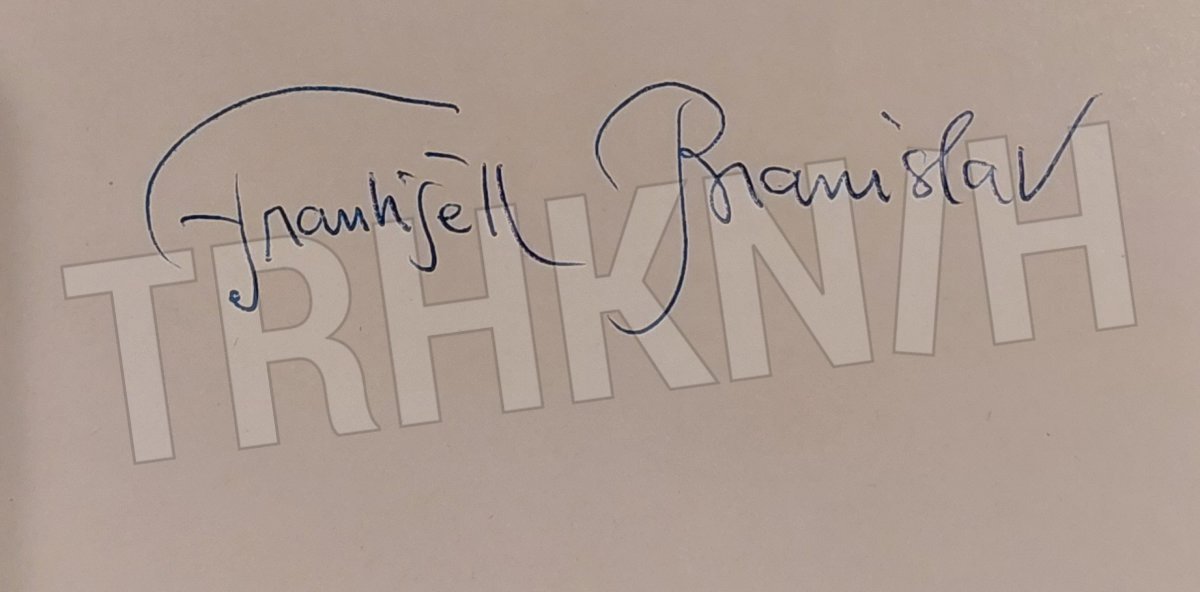 František Branislav
TRHKNIH